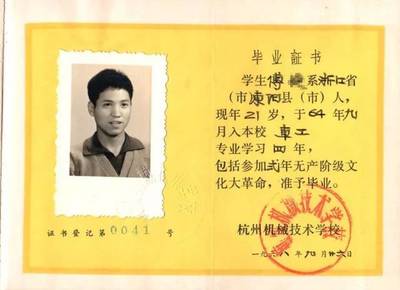 毕业证书
学生傅 系浙江省
(市)東阳县(市)人,
现年21岁,于64年九
月入本校 车工
专业学习四年,
包括参加弍年无产阶级文
化大革命,准予毕业。
杭州机械技术学校
一九六八年九月廿六日
证书登记第0041号